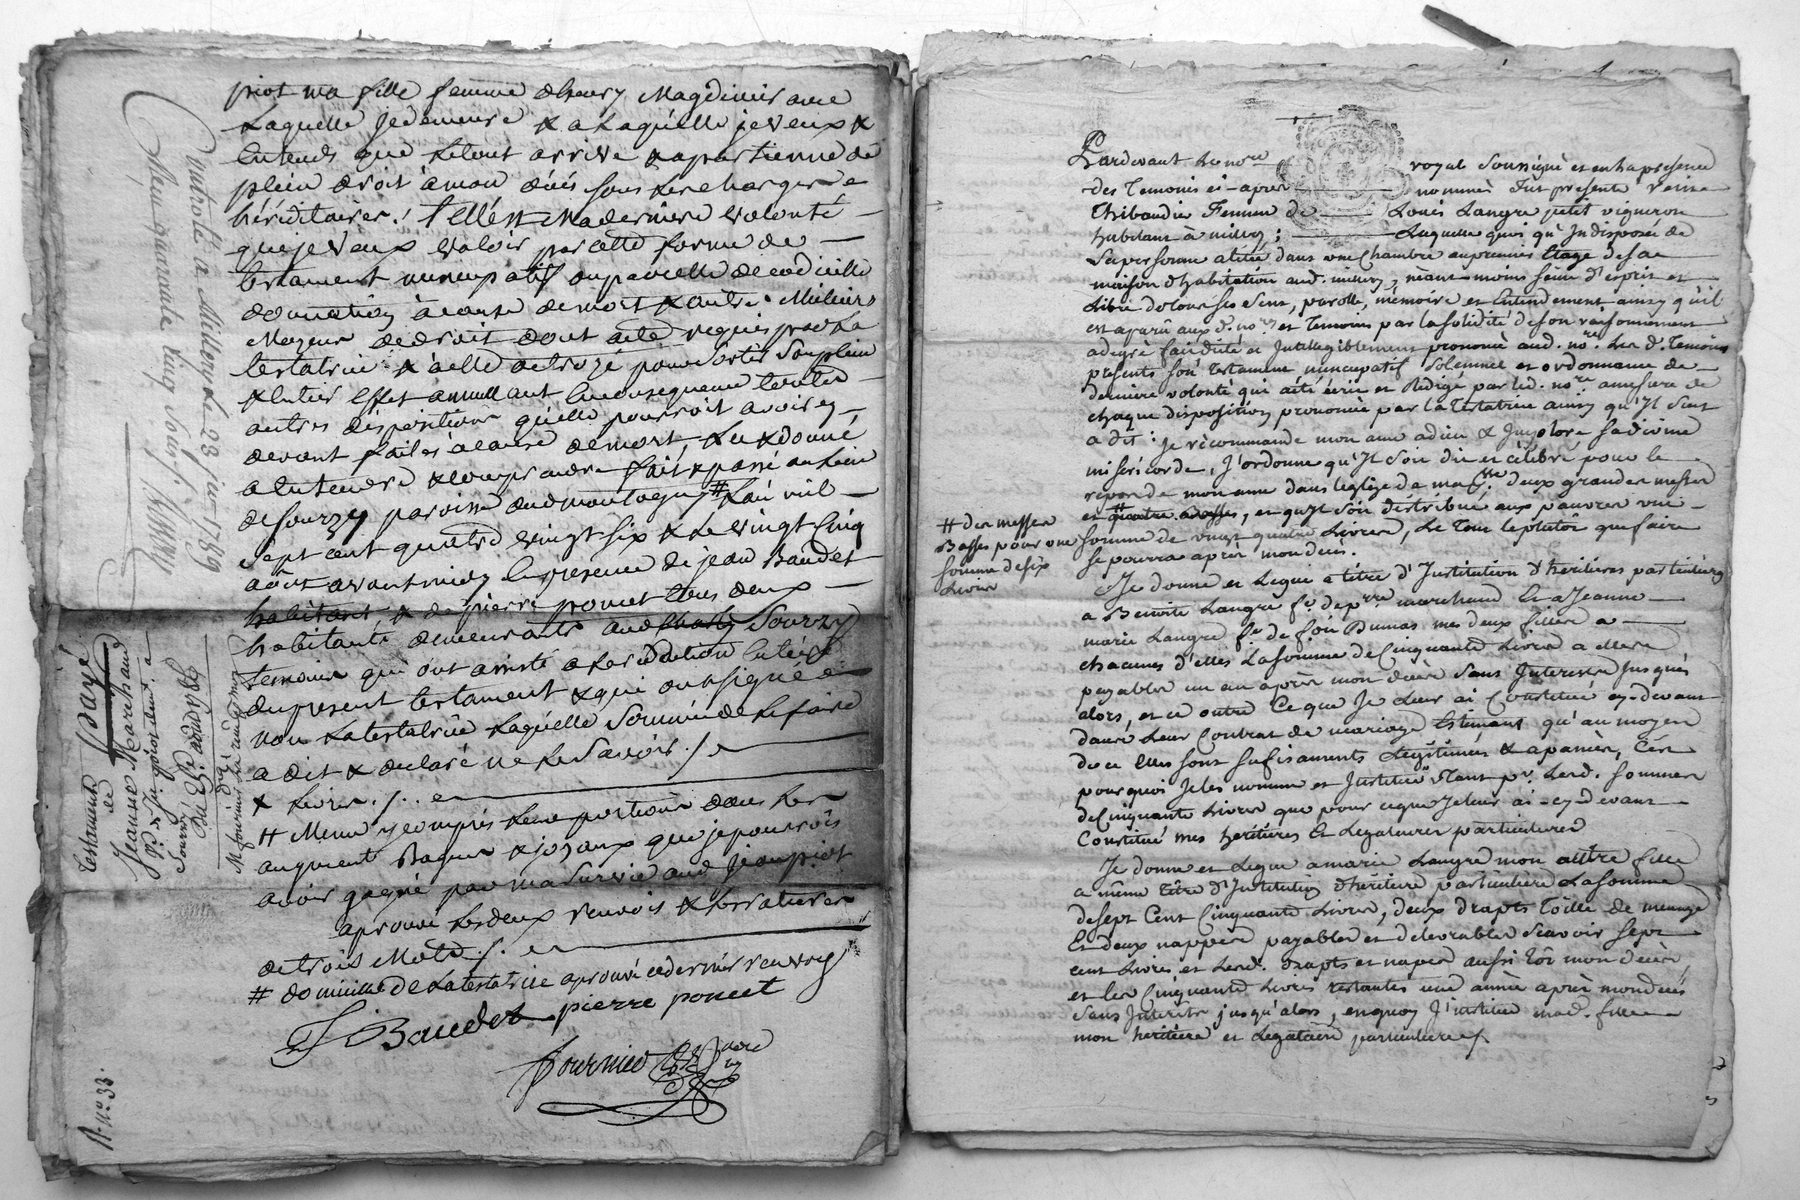 piot ma fille femme d'henry Magdinier avec
Laquelle je demeure & a Laquelle je veux &
Entends que le tout arrive & apartienne de
plein droit à mon décés sous les charges
héréditaires. telle est Ma derniere volonté
que je veux valoir par cette forme de
testament nuncupatif ou par celle de codicille
donation à cause de mort & autre Meilleurs
Moyens de droit dont acte requis par La
testatrice & à elle octroyé pour sortir son plein
& entier Effet annullant en consequence toutes
autres dispositions qu'elle pourroit avoir cy
devant faites à cause de mort Lu & donné
a entendre & comprendre fait & passé au Lieu
de sourzy paroisse dud montagny # L'an mil
sept cent quatre vingt six & Le vingt cinq
aôut avant midy En presence de jean Baudet
habitant & de pierre poncet tous deux
habitants demeurants aud Sourzy
temoins qui ont assisté a la rédaction Entiere
du present testament & qui ont signé
non La testatrice Laquelle Sommée de Le faire
a dit & declaré ne Le Savoir ./.
& Livres ./.
# Meme y compris Les portions dans Les
augment Bagues & joyaux que je pourrois
avoir gagné par ma survie aud jean piot
aprouvé Les deux renvois & Les ratures
de trois Mots ./.
# domicille de La testatrice aprouvé ce dernier renvoy
J Baudet pierre poncet
fournier
Controllé à Millery le 23 1789
testament
de
Jeanne Marechand
Sourzy
N. no. 33.
Pardevant Le no.re royal Soussigné et en la presence
des Temoins ci-apres nommés fut presente
Thibaudier Femme de Louis Langre petit vigneron
habitant à millery ; Laquelle quoi qu'Indisposée de
Sa personne alitée dans une Chambre au premier Etage de sa
maison d'habitation aud. millery, néant moins saine d'esprit et
Libre de tous ses sens, parolle, memoire et Entendement ainsy qu'il
est aparu aux d. no.re et Temoins par la solidité de son raisonnement
a de gré fait dicté et Intelligiblement prononcé aud. no.re Les d. Temoins
presents son testament nuncupatif Solemnel et ordonnance de
derniere volonté qui a été écrit et Redigé par led. no.re amesure de
chaque disposition prononcée par la Testatrice ainsy qu'Il s'en suit
a dit : je recommande mon ame a dieu & Implore sa divine
misericorde, J'ordonne qu'Il soit dit et célébré pour le
repos de mon ame dans l'eglise de ma p.sse deux grandes messes
et quatre basses, et qu'Il soit distribué aux pauvres une
somme de vingt quatre Livres, Le Tout le plutôt que faire
se pourra après mon decés.
# des messes
Basses pour une
somme de six
Livres
Je donne et Legue a titre d'Institution d'heritieres particulieres
a Benoite Langre f.e de p.rre marchand Et a Jeanne
marie Langre f.e de Dumas mes deux filles a
chacunes d'elles La somme de Cinquante Livres a elles
payables un an après mon décès Sans Interests jusques
alors, et ce outre Ce que Je Leur ai Constitué cy-devant
dans Leur Contrat de mariage Estimant qu'au moyen
de ce Elles sont sufisaments Legitimées & apanées, C'est
pourquoi Je les nomme et Institue tant p.r Lesd. sommes
de Cinquante Livres que pour ce que Je leur ai cy-devant
Constitué mes heritieres Et Legataires particulieres
Je donne et Legue a marie Langre mon autre fille
a même titre d'Institution d'heritiere particuliere La somme
de sept Cent Cinquante Livres, deux drapts toille de menage
Et deux nappes payables et delivrables Scavoir sept
cent Livres et Lesd. drapts et napes aussi tôt mon decès,
et les Cinquante Livres restantes une année après mon decés
Sans Interets jusqu'alors, en quoy J'institue mad. fille
mon heritiere et Legataire particuliere ./.